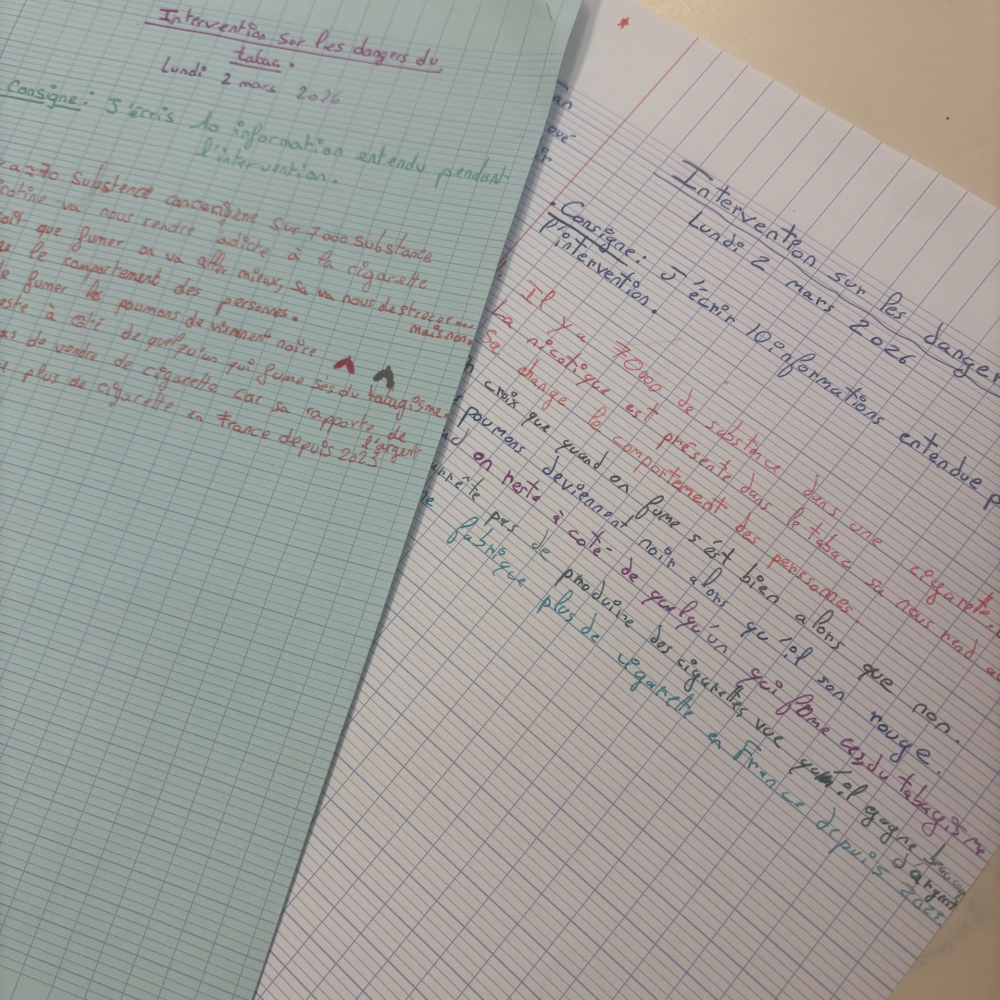 Intervention sur les dangers du
tabac.
Lundi 2 mars 2026
Consigne: J'écris 10 information entendu pendant
l'intervention.
y a 70 substence cancerigène sur 7000 substante
va nous rendre adicte à la cigarette
que fumer on va aller mieux, sa va nous destresser
mais non.
le comportement des personnes.
fumer les poumons deviennent noire
à coté de quelqu'un qui fume ses du tabagisme
de vendre de cigarette car sa rapporte de
l'argent
plus de cigarette en france depuis 2023
Intervention sur les danger
Lundi 2 mars 2026
Consigne: J'écrir 10 informations entendue
l'intervention.
Il y a 70000 de substance dans une cigarette.
La nicotique est présente dans le tabac sa nous rend
Sa change le comportement des perssonnes
croix que quand on fume s'est bien alors que non.
poumons deviennent noir alors qu'il son rouge.
on reste à coté de quelqu'un qui fume ces du tabagisme
pas de produire des cigarettes vue qu'il gagne
d'argent
fabrique plus de cigarette en France depuis 2023.